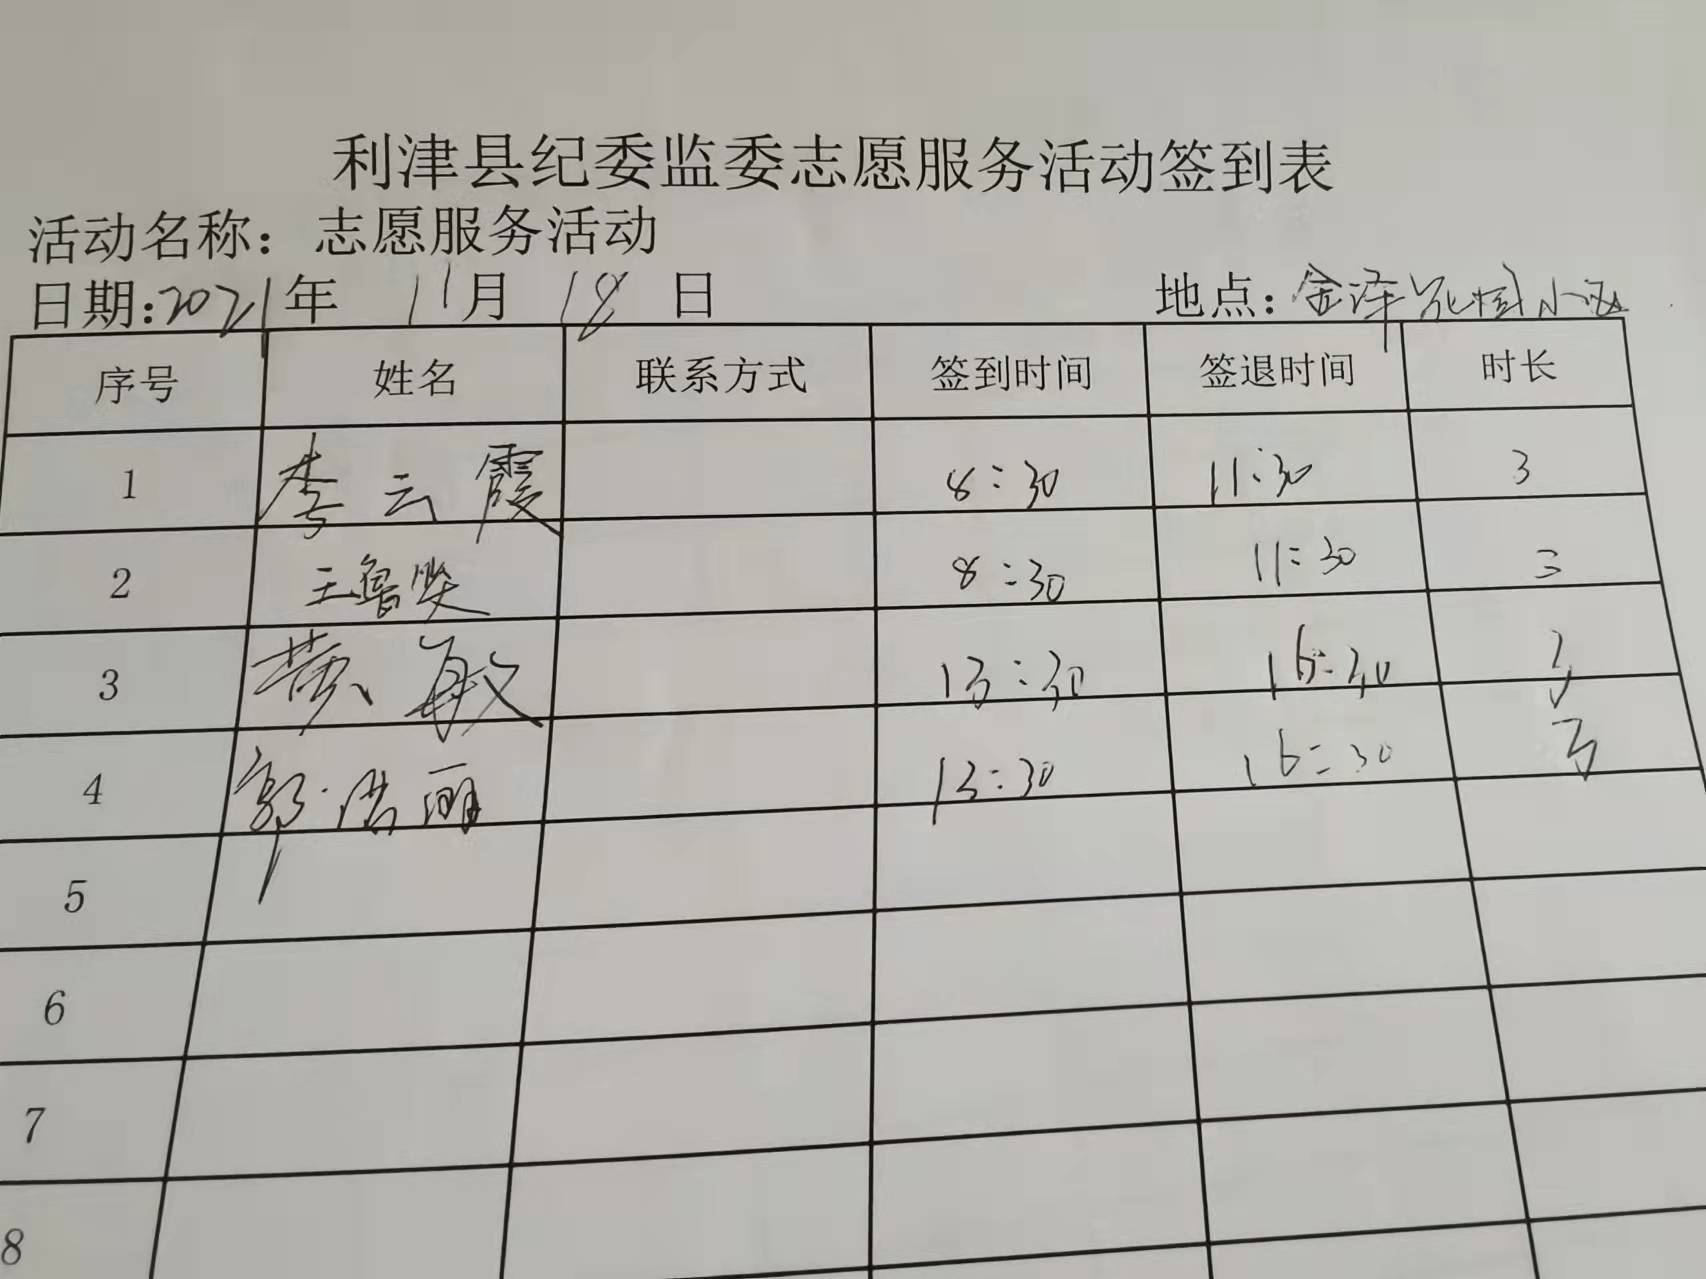 利津县纪委监委志愿服务活动签到表
活动名称：志愿服务活动
日期:2021年 11月 18日 地点:金泽花园小区
序号 姓名 联系方式 签到时间 签退时间 时长
1 李云霞 8:30 11:30 3
2 王鲁 8:30 11:30 3
3 黄敏 13:30 16:30 3
4 郭洁丽 13:30 16:30 3
5
6
7
8